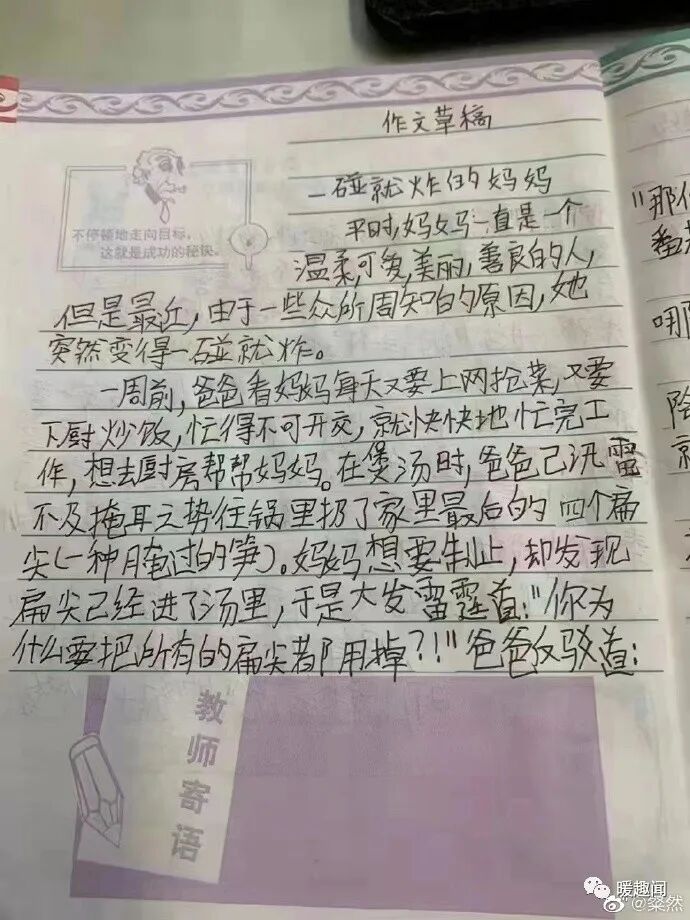 作文草稿
一碰就炸的妈妈
不停顿地走向目标，
这就是成功的秘诀。
平时，妈妈一直是一个
温柔，可爱，美丽，善良的人，
但是最近，由于一些众所周知的原因，她
突然变得一碰就炸。
一周前，爸爸看妈妈每天又要上网抢菜，又要
下厨炒饭，忙得不可开交，就快快地忙完工
作，想去厨房帮帮妈妈。在煲汤时，爸爸已汛雷
不及掩耳之势往锅里扔了家里最后的四个扁
尖（一种腌过的笋）。妈妈想要制止，却发现
扁尖已经进了汤里，于是大发雷霆道："你为
什么要把所有的扁尖都用掉？！"爸爸反驳道：
教师寄语
"那
咽
暖趣闻
@粲然